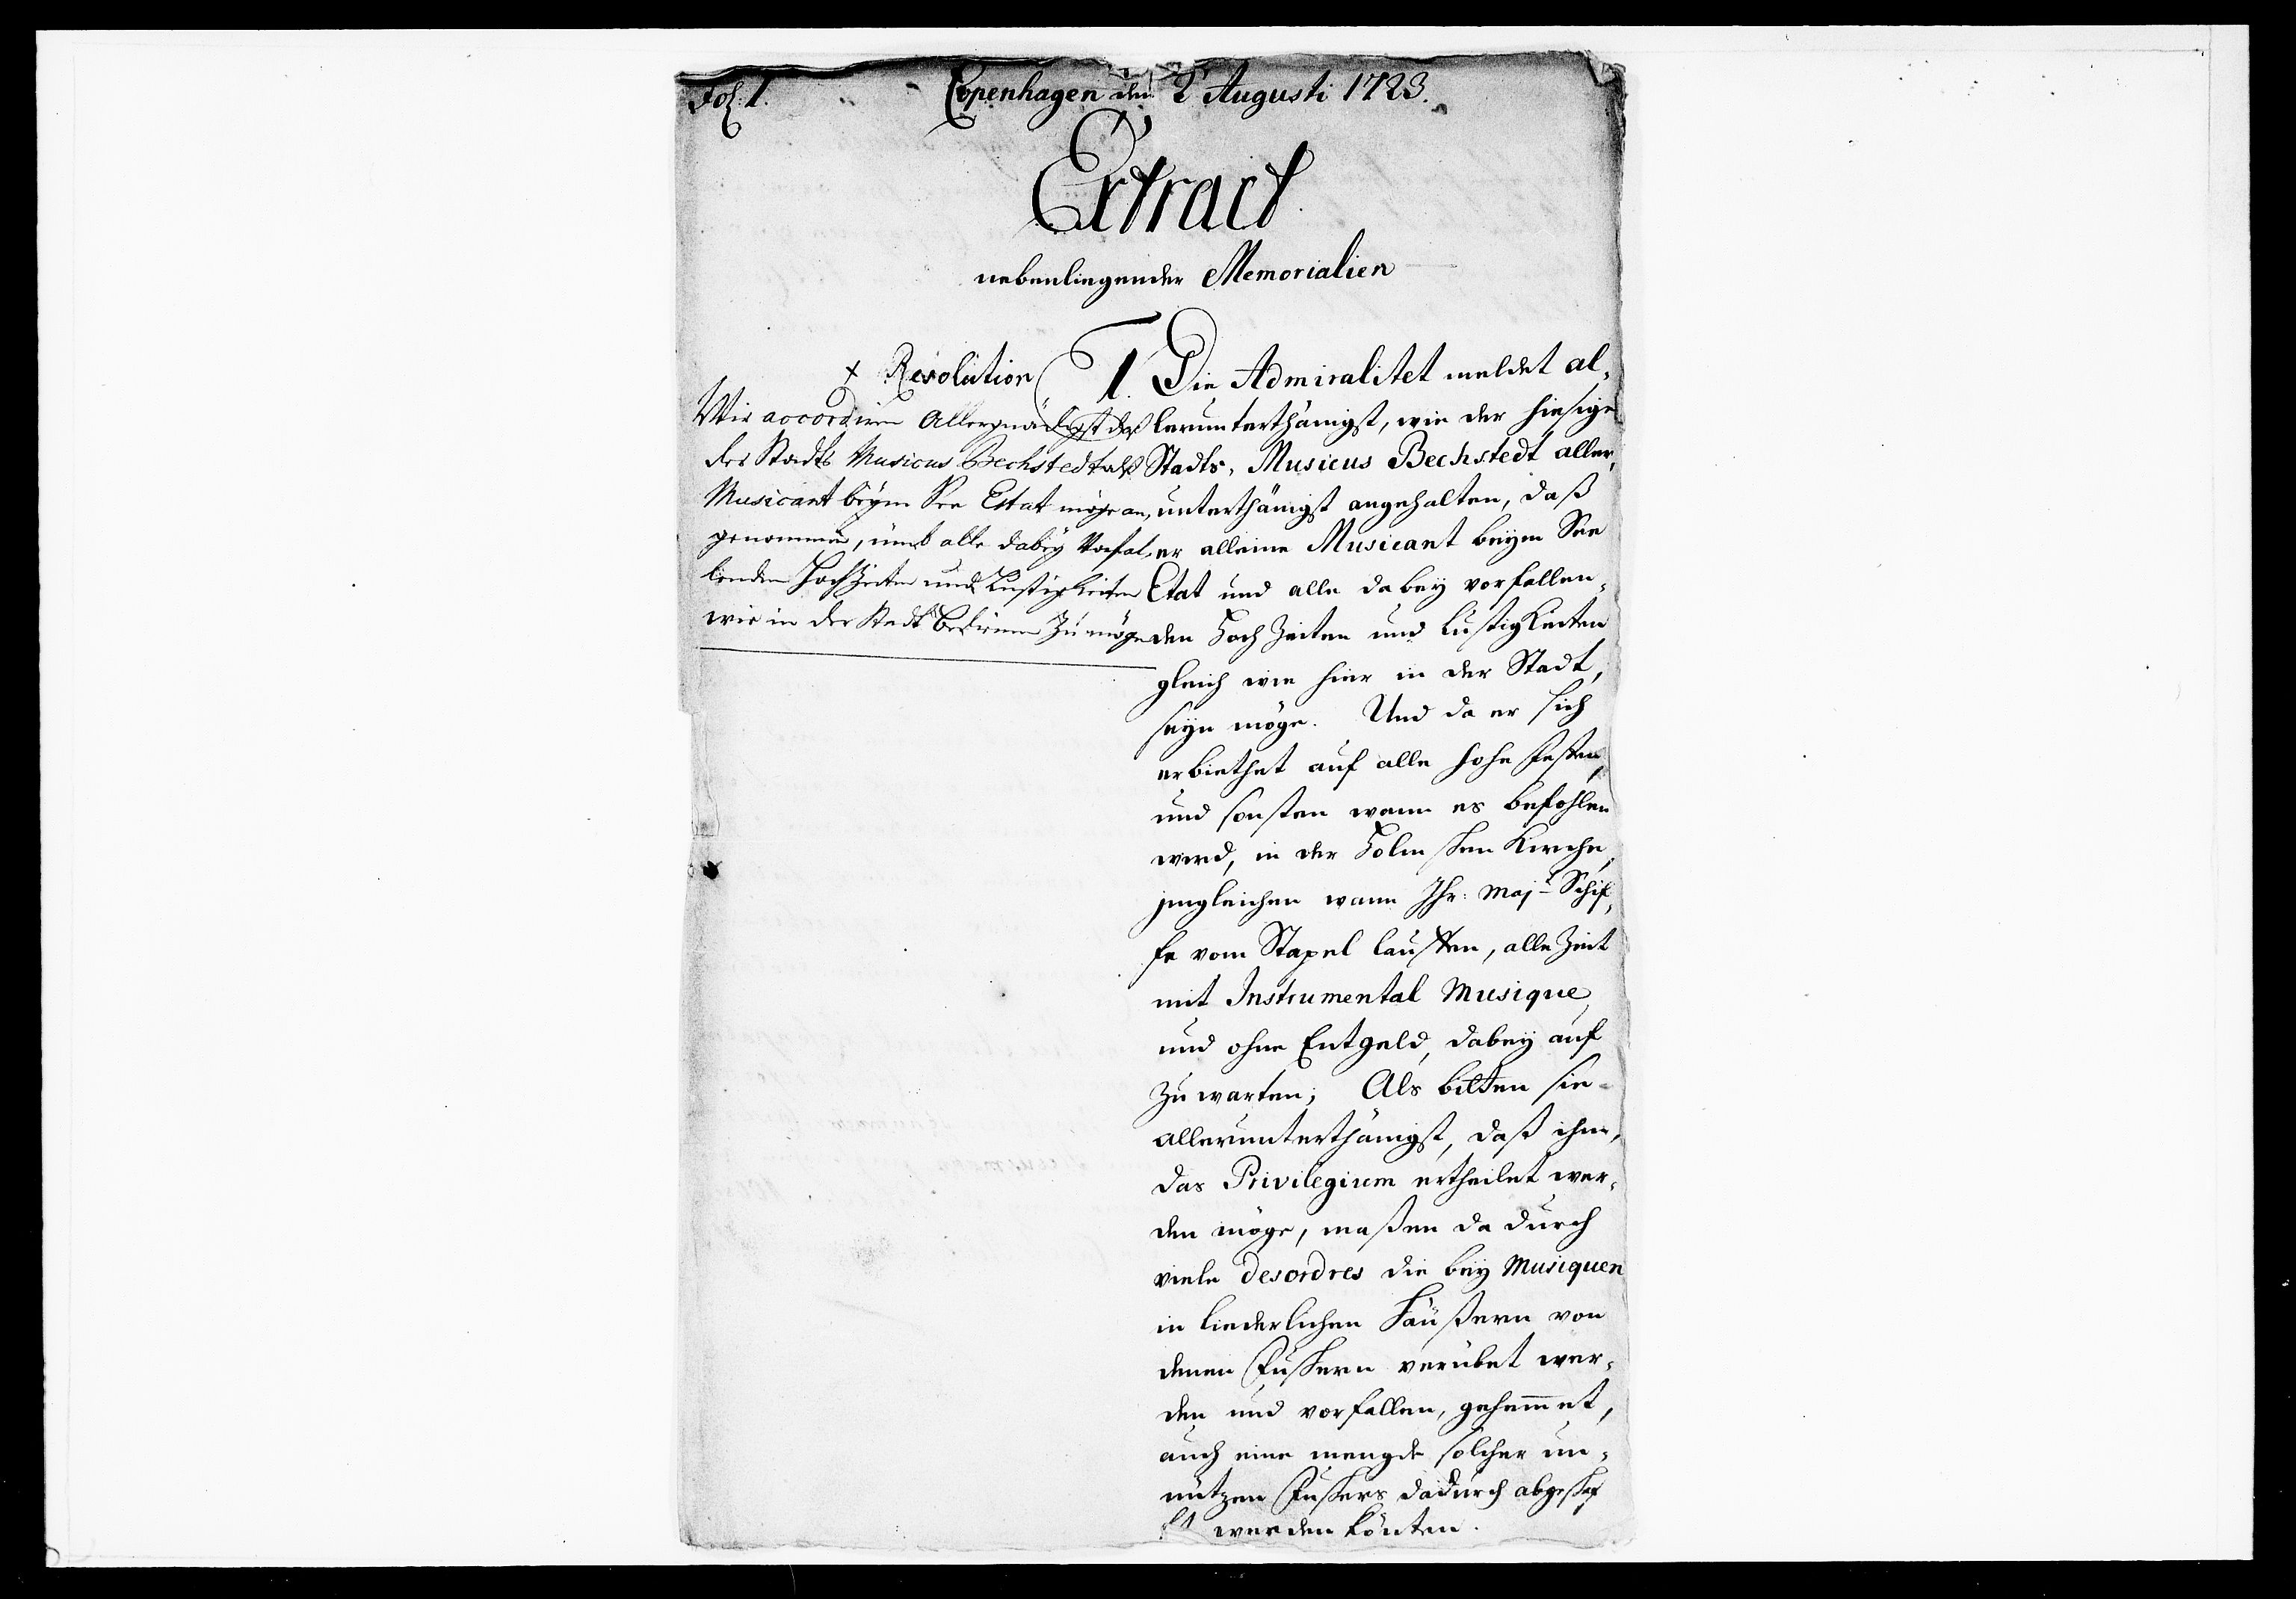 Fol: 1.
Copenhagen den 2t Augusti 1723.
Extract
nebenliegender Memorialien
x Resolution
Wir accordiren Allergnädigst daß
der Stadts Musicus Bechstedt als
Musicant beym See Etat möge an,
genommen, umb alle dabey vorfal,
lenden Hochzeiten und Lustigkeiten
wie in der Stadt bedienen zu möge
1. Die Admiralitet meldet al,
lerunterthänigst, wie der hiesige
Stadts, Musicus Bechstedt aller,
unterthänigst angehalten, daß
er alleine Musicant beym See
Etat und alle dabey vorfallen,
den Hoch Zeiten und Lustigkeiten
gleich wie hier in der Stadt,
seyn möge. Und da er sich
erbiethet auf alle hohe festen,
und sonsten wann es befohlen
werd, in der Holmschen Kirche,
jmgleichen wann Ihr: Majt Schif,
fe vom Stapel lauffen, alle Zeit
mit Instrumental Musique,
und ohne Entgeld, dabey auf
zu warten; Als bitten sie
allerunterthänigst, daß ihm,
das Privilegium ertheilet wer,
den möge, maßen da durch
viele desordres die bey Musiquen
in liederlichen Häußern von
denen Fuschern verübet wer,
den und vorfallen, gehem̅et,
auch eine mengde solcher un,
nützen Fuschers dadurch abgeschaf
ft werden könten.